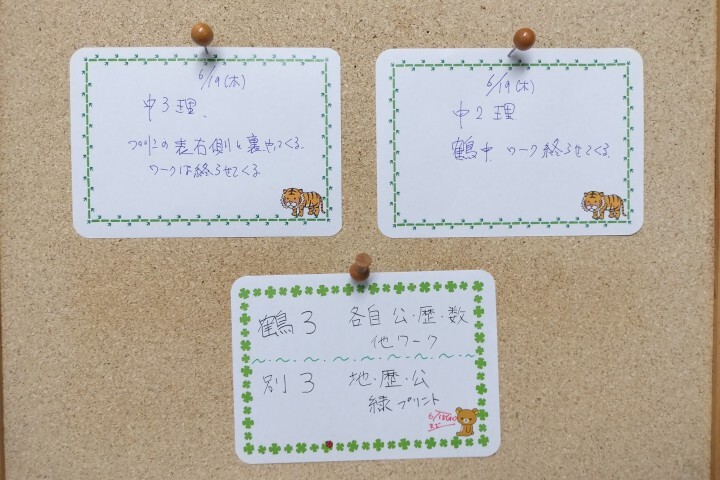 6/19(木)
中3理.
の表右側と裏やってくる.
ワークは終らせてくる
6/19(木)
中2理
鶴中. ワーク終らせてくる.
鶴3 各自 公・歴・数
他ワーク
別3 地・歴・公
緑プリント